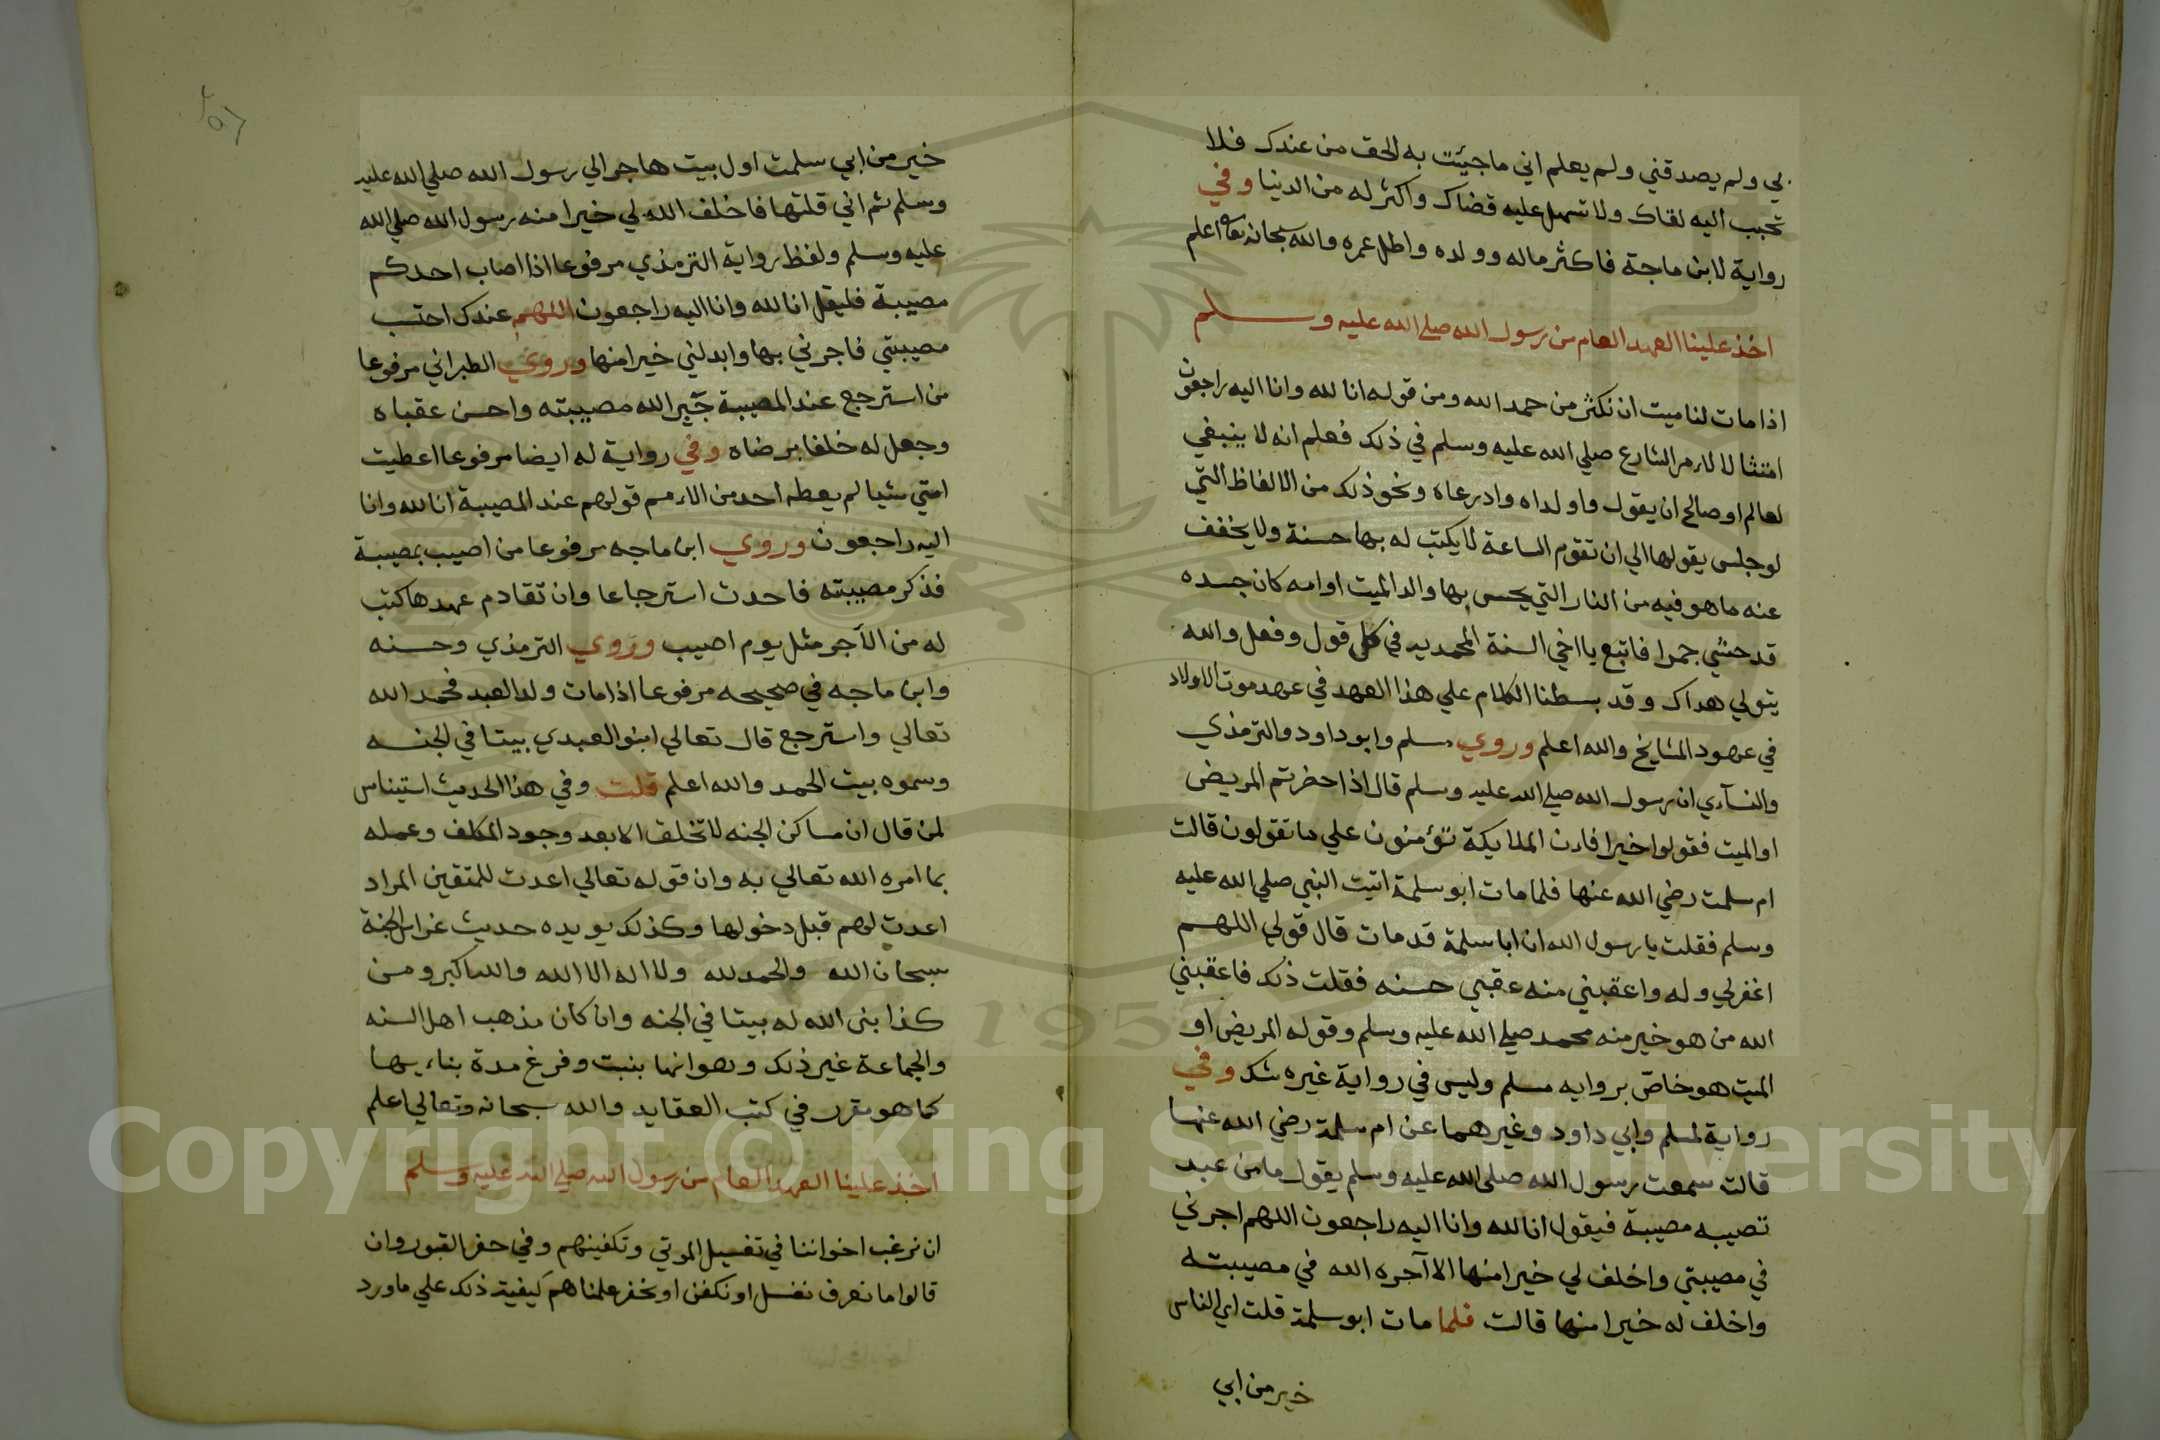 بي ولم يصدقني ولم يعلم اني ماجيئت به الحق من عندك فلا
تحبب اليه لقاك ولا تسهل عليه قضاك واكثر له من الدنيا وفي
رواية لابن ماجة فاكثر ماله وولده واطل عمره والله سبحانه اعلم
اخذ علينا العهد العام من رسول الله صلي الله عليه وسلم
اذا مات لنا ميت ان نكثر من حمد الله ومن قوله انا لله وانا اليه راجعون
امتثالا لامر الشارع صلي الله عليه وسلم في ذلك فعلم انه لا ينبغي
لعالم او صالح ان يقول واولداه وادرعاه ونحو ذلك من الالفاظ التي
لو جلس يقولها الي ان تقوم الساعة لا يكتب له بها حسنة ولا يخفف
عنه ما هو فيه من النار التي يحسن بها والد الميت او امه كان جسده
قد حشي جمرا فاتبع يا اخي السنة المحمديه في كل قول وفعل والله
يتولي هداك وقد بسطنا الكلام علي هذا العهد في عهد موت الاولاد
في عهود المشايخ والله اعلم وروي مسلم وابو داود والترمذي
والنسآي ان رسول الله صلي الله عليه وسلم قال اذا حضرتم المريض
او الميت فقولوا خيرا فان الملايكة تؤمنون علي ما تقولون قالت
ام سلمت رضي الله عنها فلما مات ابو سلمة اتيت النبي صلي الله عليه
وسلم فقلت يا رسول الله ان ابا سلمة قد مات قال قولي اللهم
اغفر لي وله واعقبني منه عقبي حسنه فقلت ذلك فاعقبني
الله من هو خير منه محمد صلي الله عليه وسلم وقوله المريض او
الميت هو خاص بروايه مسلم وليس في رواية غيره شك وفي
رواية لمسلم وابي داود وغيرهما عن ام سلمة رضي الله عنها
قالت سمعت رسول الله صلي الله عليه وسلم يقول ما من عبد
تصيبه مصيبة فيقول انا لله وانا اليه راجعون اللهم اجرني
في مصيبتي واخلف لي خيرا منها الا آجره الله في مصيبته
واخلف له خيرا منها قالت فلما مات ابو سلمة قلت اي الناس
خير من ابي
خير من ابي سلمت اول بيت هاجر الي رسول الله صلي الله عليه
وسلم ثم اني قلتها فاخلف الله لي خيرا منه رسول الله صلي الله
عليه وسلم ولفظ رواية الترمذي مرفوعا اذا اصاب احدكم
مصيبة فليقل انا لله وانا اليه راجعون اللهم عندك احتسب
مصيبتي فاجرني بها وابدلني خيرا منها وروي الطبراني مرفوعا
من استرجع عند المصيبة جبر الله مصيبته واحسن عقباه
وجعل له خلفا برضاه وفي رواية له ايضا مرفوعا اعطيت
امتي شيا لم يعطه احد من الامم قولهم عند المصيبة انا لله وانا
اليه راجعون وروي ابن ماجه مرفوعا من اصيب بمصيبة
فذكر مصيبته فاحدث استرجاعا وان تقادم عهدها كتب
له من الآجر مثل يوم اصيب وروي الترمذي وحسنه
وابن ماجه في صحيحه مرفوعا اذا مات ولد العبد فحمد الله
تعالي واسترجع قال تعالي ابنوا لعبدي بيتا في الجنه
وسموه بيت الحمد والله اعلم قلت وفي هذا الحديث استيناس
لمن قال ان مساكن الجنه لا تخلق الا بعد وجود المكلف وعمله
بما امره الله تعالي به وان قوله تعالي اعدت للمتقين المراد
اعدت لهم قبل دخولها وكذلك يويده حديث غراس الجنة
سبحان الله والحمد لله ولا اله الا الله والله اكبر ومن
كذا بنى الله له بيتا في الجنه وان كان مذهب اهل السنه
والجماعة غير ذلك وهو انها بنيت وفرغ مدة بناءيها
كما هو مقرر في كتب العقايد والله سبحانه وتعالي اعلم
اخذ علينا العهد العام من رسول الله صلي الله عليه وسلم
ان نرغب اخواننا في تغسيل الموتي وتكفينهم وفي حفر القبور وان
قالوا ما نعرف نغسل او نكفن او نحفر علمناهم كيفية ذلك علي ما ورد
1957
Copyright © King Saud University